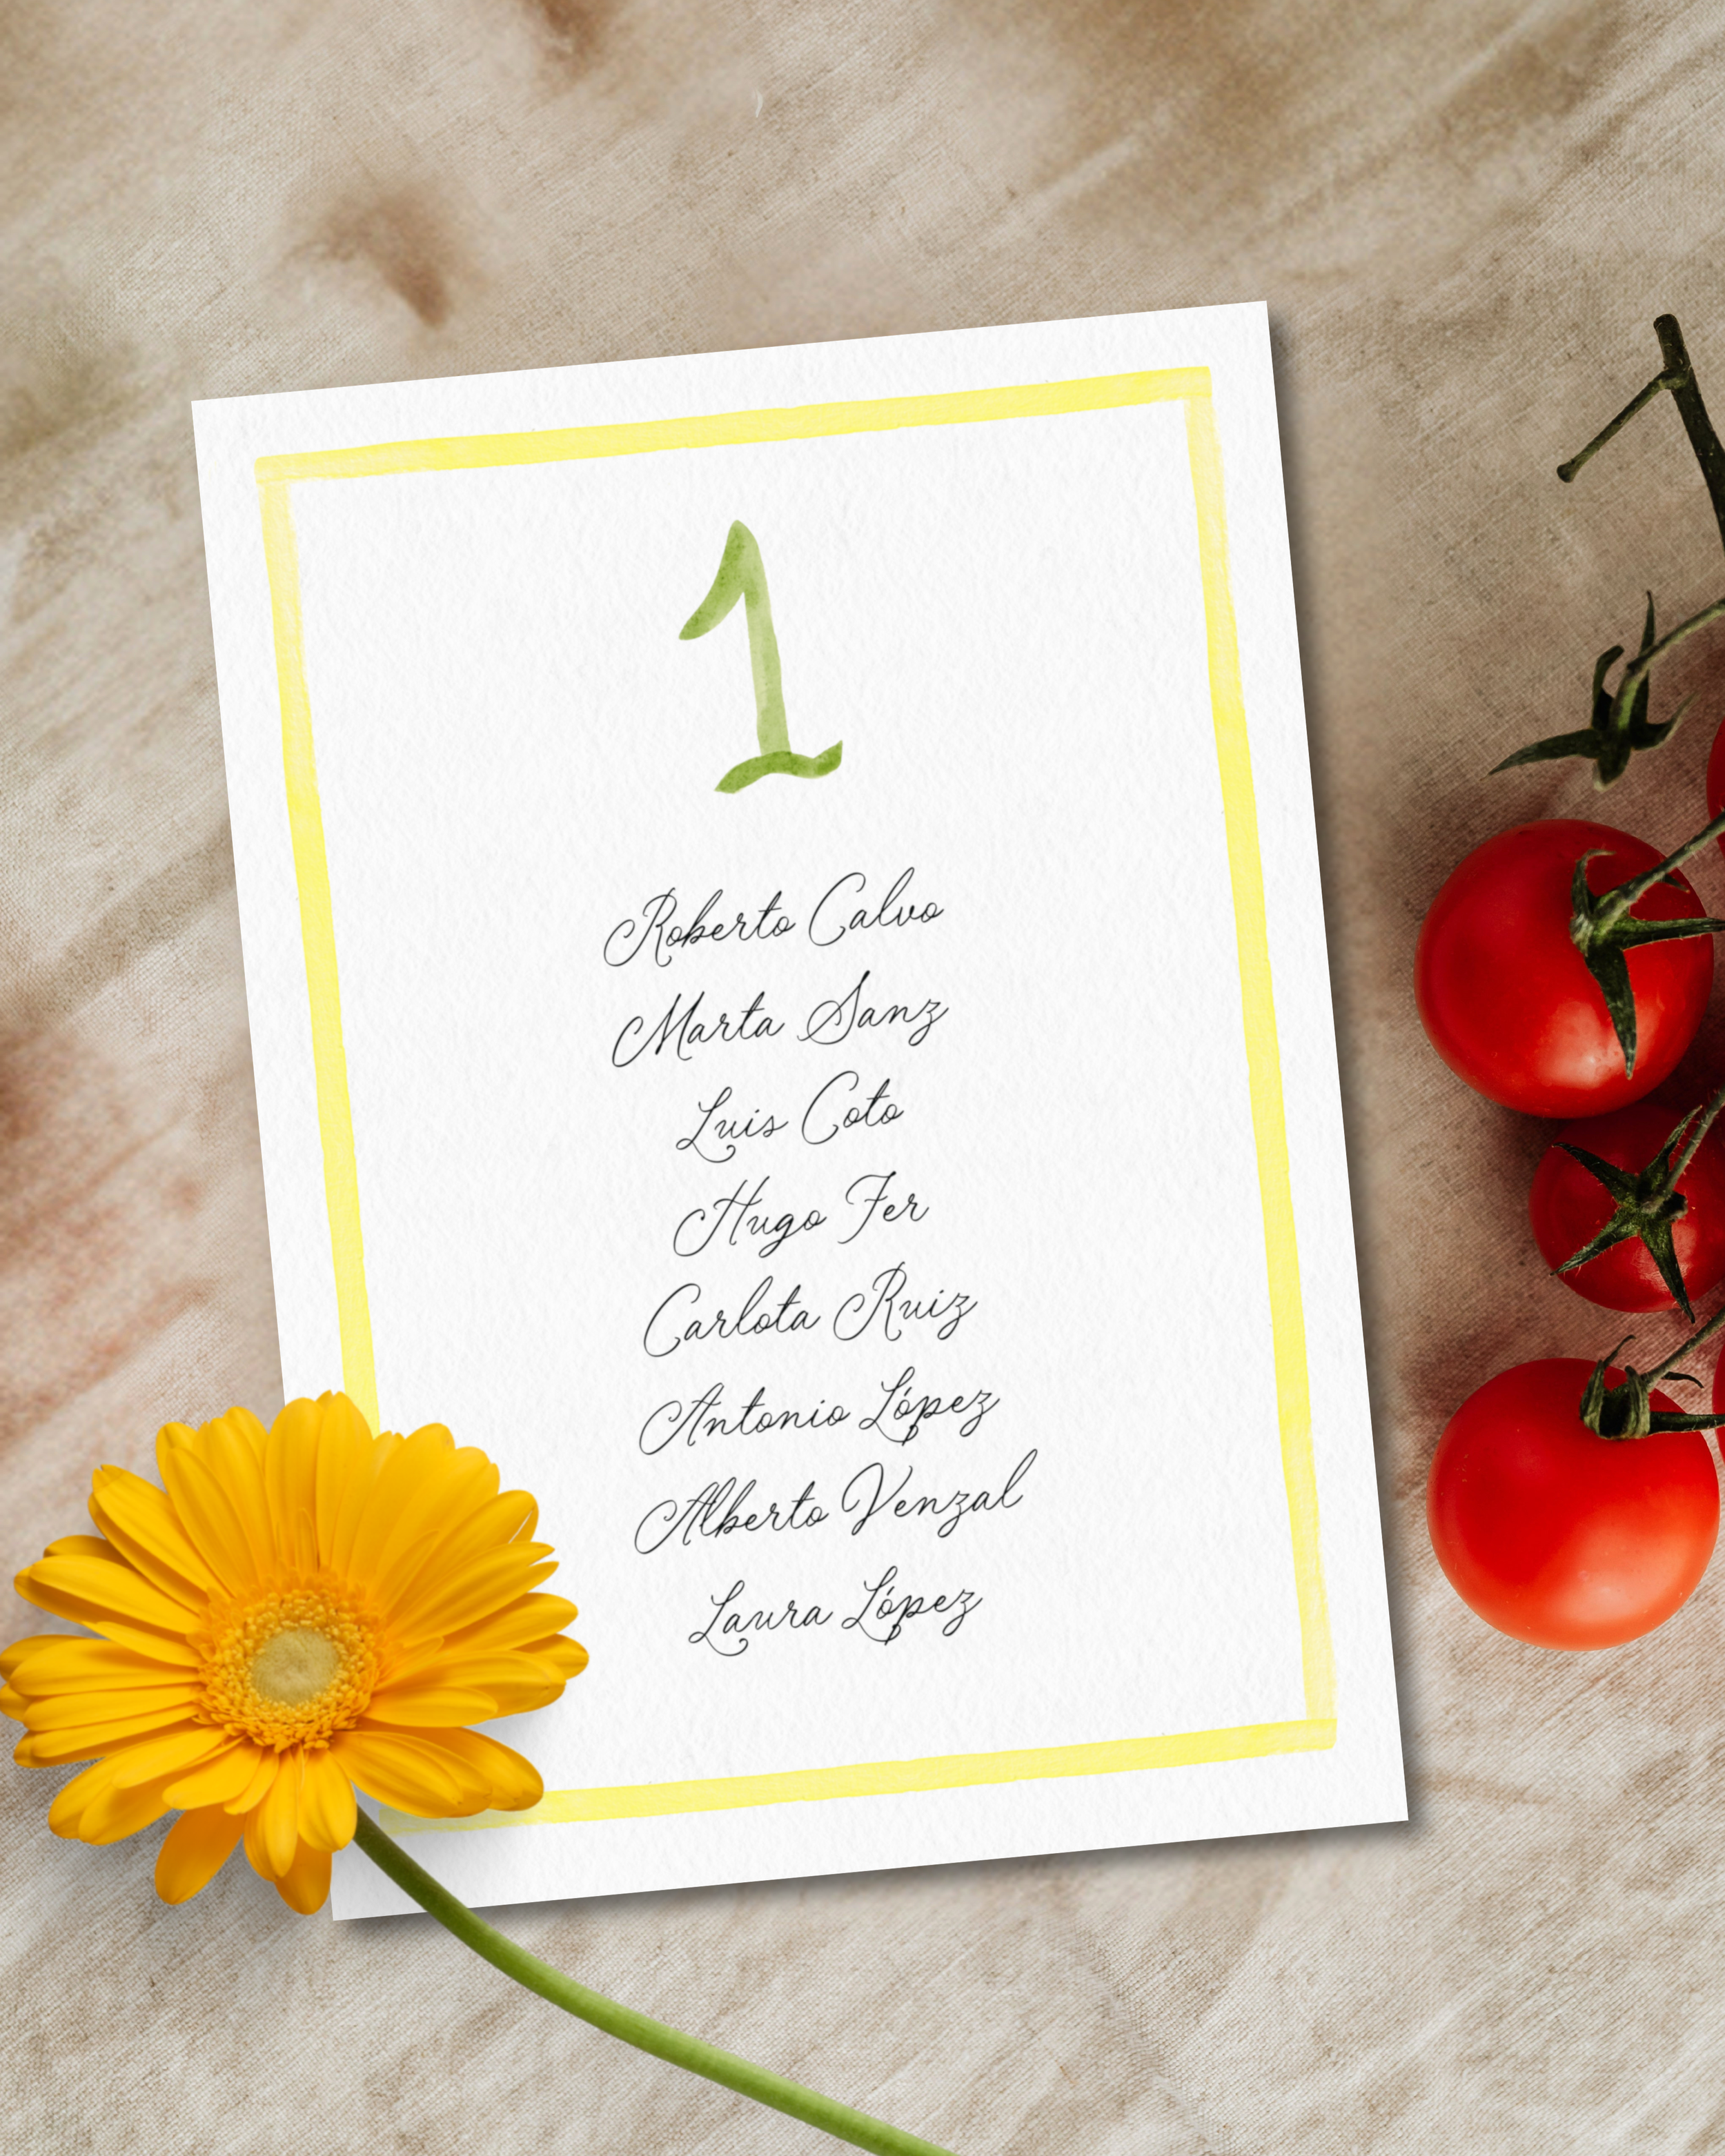 1
Roberto Calvo
Marta Sanz
Luis Coto
Hugo Fer
Carlota Ruiz
Antonio López
Alberto Venzal
Laura López